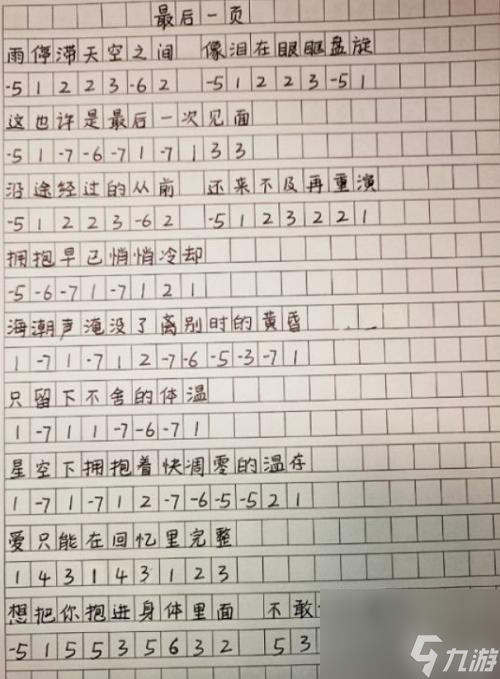 最后一页
雨停滞天空之间 像泪在眼眶盘旋
-5 1 2 2 3 -6 2 -5 1 2 2 3 -5 1
这也许是最后一次见面
-5 1 -7 -6 -7 1 -7 1 3 3
沿途经过的从前 还来不及再重演
-5 1 2 2 3 -6 2 -5 1 2 3 2 2 1
拥抱早已悄悄冷却
-5 -6 -7 1 -7 1 2 1
海潮声淹没了离别时的黄昏
1 -7 1 -7 1 2 -7 -6 -5 -3 -7 1
只留下不舍的体温
1 -7 1 1 -7 -6 -7 1
星空下拥抱着快凋零的温存
1 -7 1 -7 1 2 -7 -6 -5 -5 2 1
爱只能在回忆里完整
1 4 3 1 4 3 1 2 3
想把你抱进身体里面 不敢
-5 1 5 5 3 5 6 3 2 5 3
九游